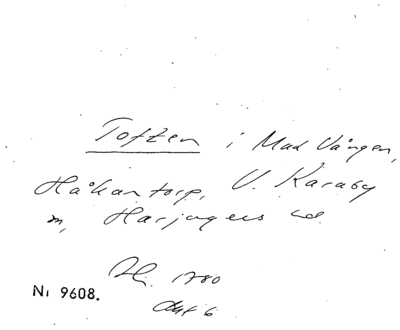 Toften i Mad Vången,
Håkantorp, V. Karaby
sn, Harjagers hd.
1780
Akt 6
Nr 9608.